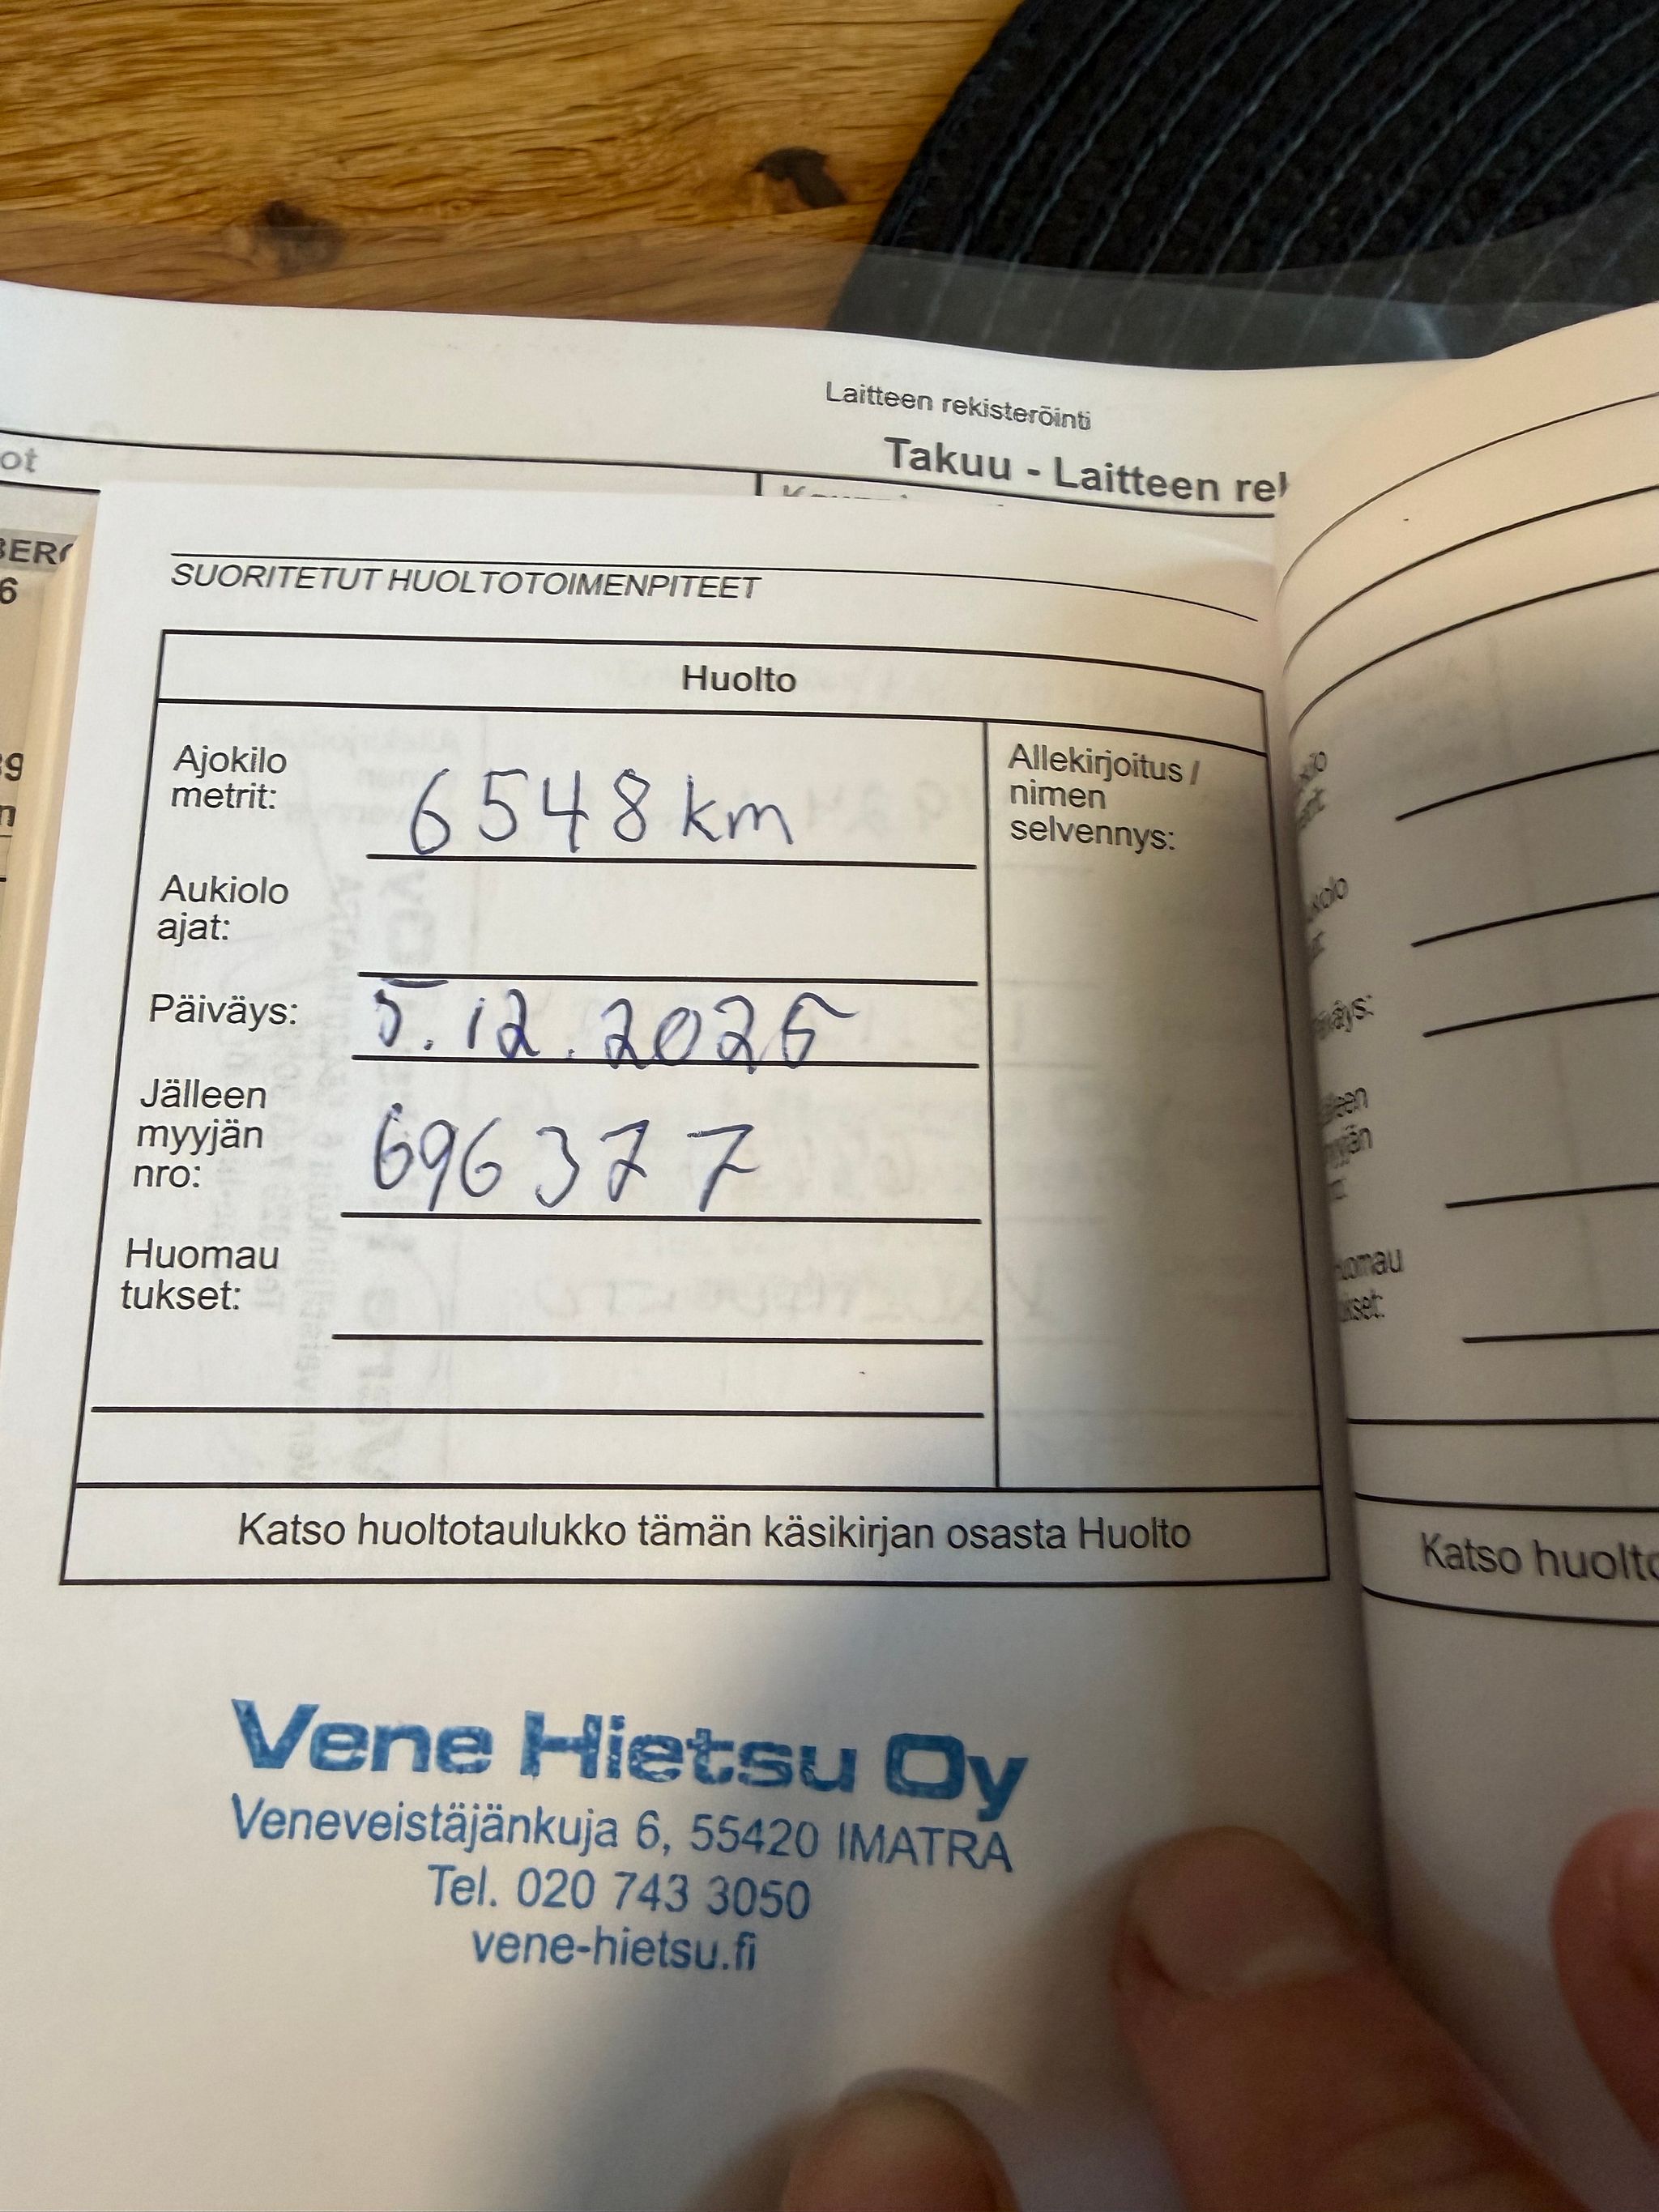 Laitteen rekisteröinti
Takuu - Laitteen rek
ot
6
SUORITETUT HUOLTOTOIMENPITEET
Huolto
Ajokilo
metrit: 6548 km
Allekirjoitus /
nimen
selvennys:
Aukiolo
ajat:
Päiväys: 5.12.2025
Jälleen
myyjän
nro: 696377
Huomau
tukset:
Katso huoltotaulukko tämän käsikirjan osasta Huolto
Vene Hietsu Oy
Veneveistäjänkuja 6, 55420 IMATRA
Tel. 020 743 3050
vene-hietsu.fi
Katso huolto